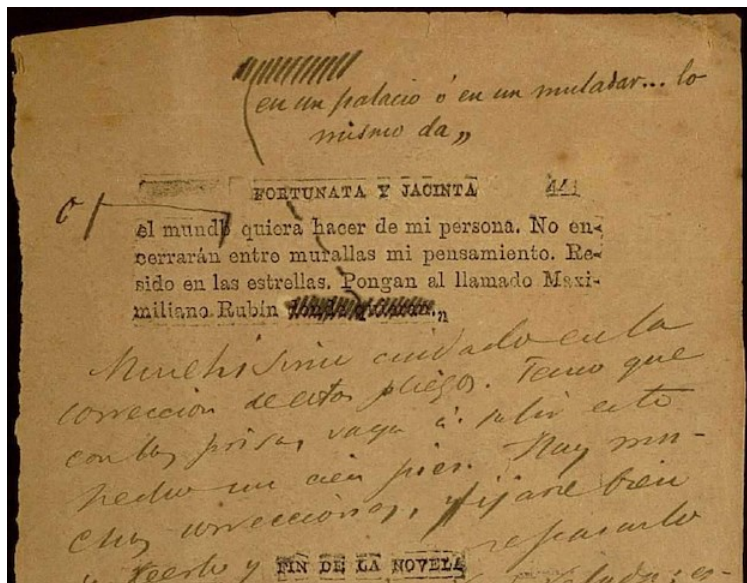 en un palacio ó en un muladar... lo
mismo da„
FORTUNATA Y JACINTA 441
o
el mundo quiera hacer de mi persona. No en-
cerrarán entre murallas mi pensamiento. Re-
sido en las estrellas. Pongan al llamado Maxi-
miliano Rubín donde quieran.„
Muchisimo cuidado en la
corrección de estos pliegos. Temo que
con las prisas, vaya á salir esto
hecho un cien pies. Hay mu-
chas correcciones, fijarse bien
y leerlo y repasarlo
FIN DE LA NOVELA